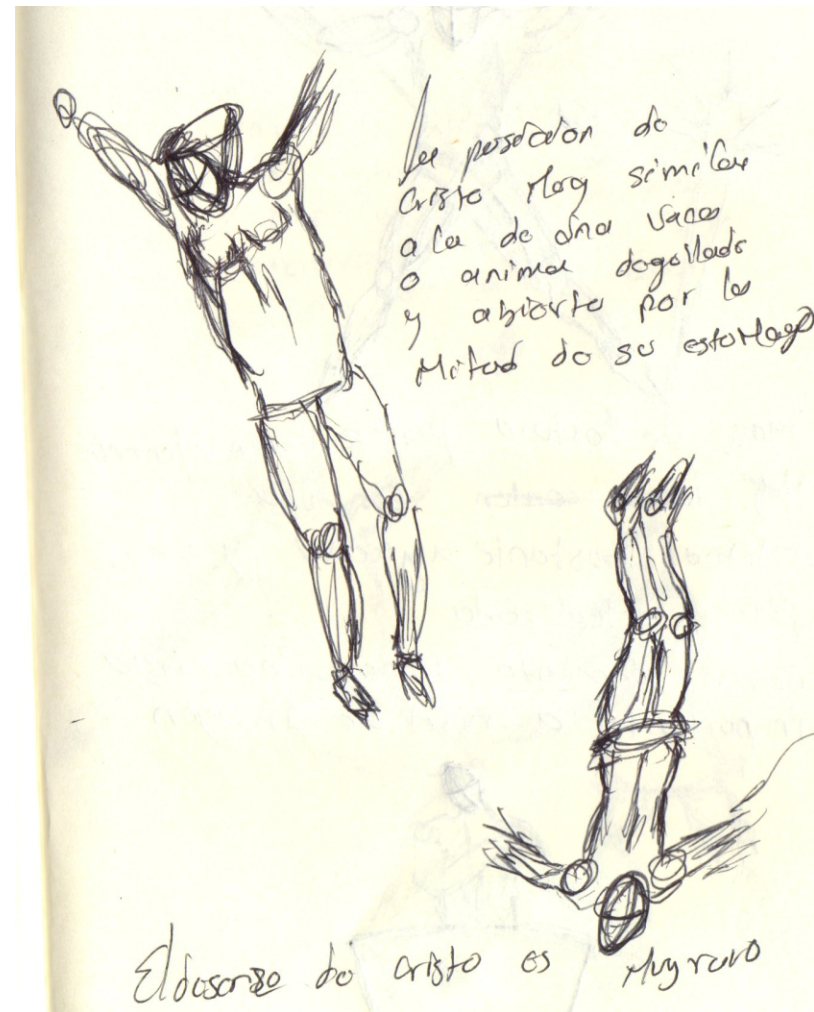 La posdcion do
Cristo Moy similar
a la do una vaca
o animal dogollado
y abiorto por la
Mitad do su estoMago
El doscrizo do cristo os Muy raro